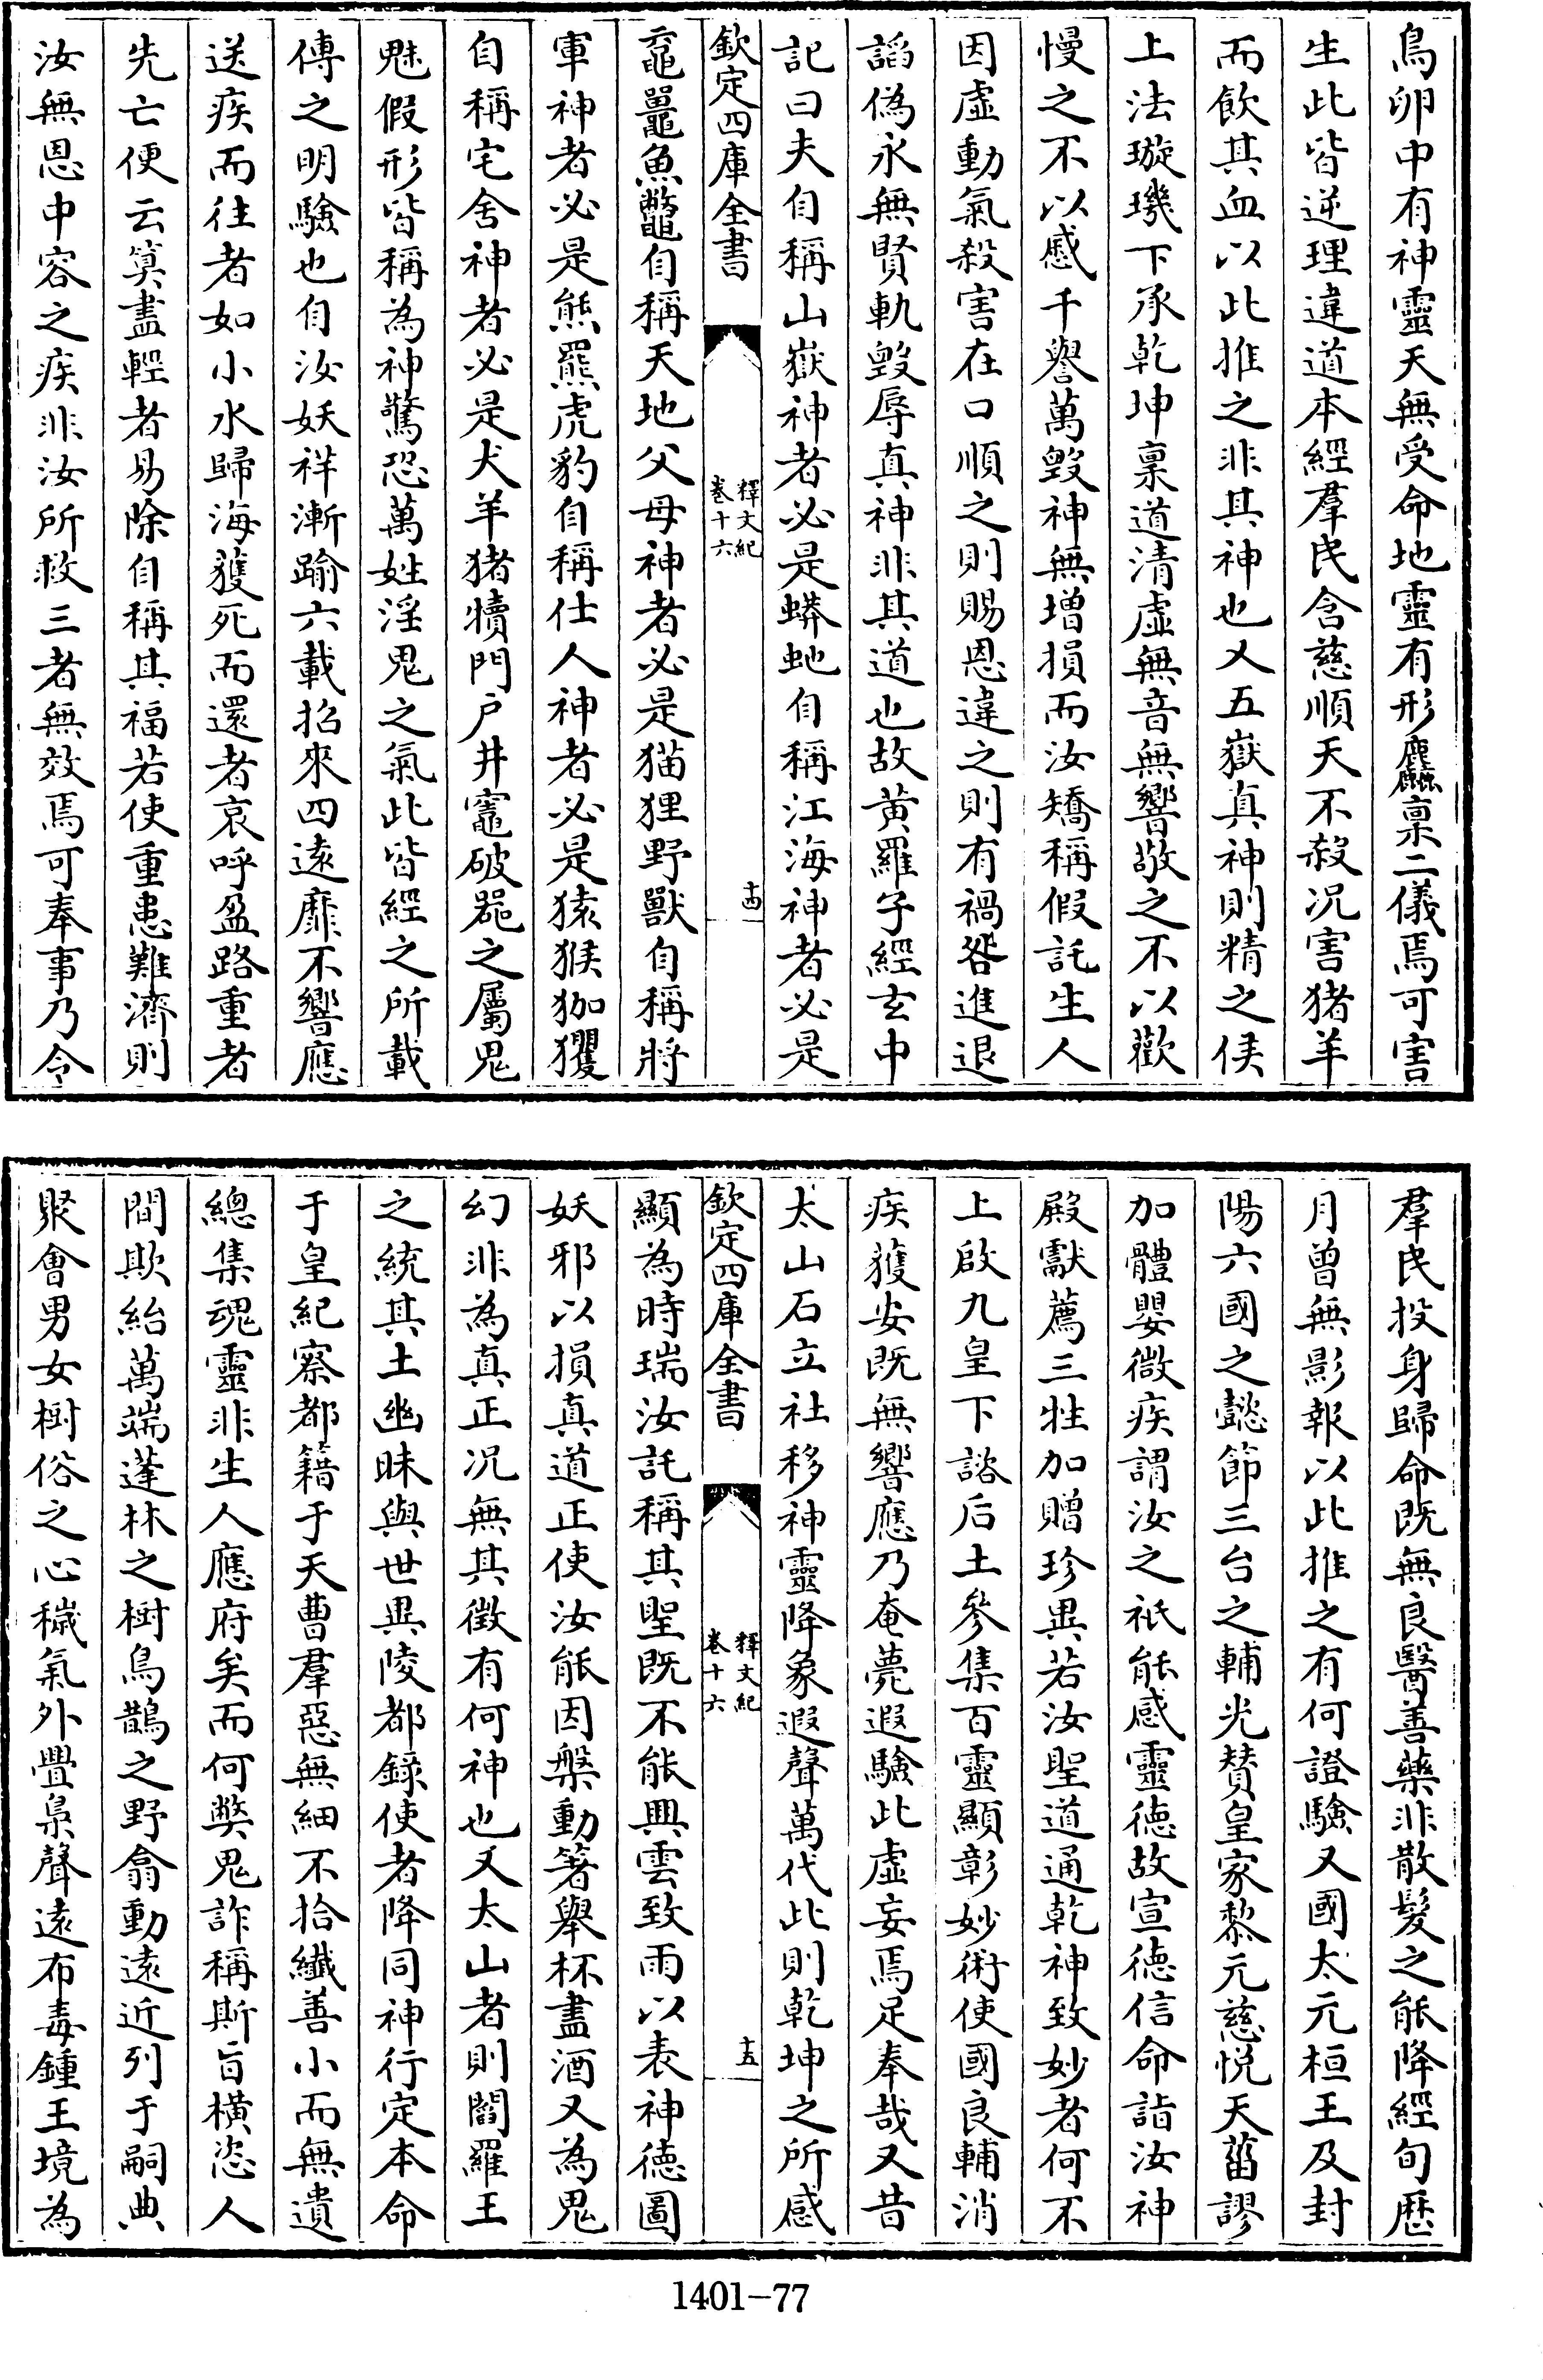 鳥卵中有神靈天無受命地靈有形麤稟二儀焉可害
生此皆逆理違道本經羣民含慈順天不殺况害猪羊
而飲其血以此推之非其神也又五嶽真神則精之侯
上法璇璣下承乾坤稟道清虛無音無響敬之不以歡
慢之不以慼千譽萬毀神無增損而汝矯稱假託生人
因虛動氣殺害在口順之則賜恩違之則有禍咎進退
諂偽永無賢軌毀辱真神非其道也故黃羅子經玄中
記曰夫自稱山嶽神者必是蟒虵自稱江海神者必是
欽定四庫全書
釋文紀
卷十六
十四
黿鼉魚鼈自稱天地父母神者必是猫狸野獸自稱將
軍神者必是熊羆虎豹自稱仕人神者必是猿猴猳玃
自稱宅舍神者必是犬羊猪犢門户井竈破器之屬鬼
魅假形皆稱為神驚恐萬姓淫鬼之氣此皆經之所載
傳之明驗也自汝妖祥漸踰六載招來四遠靡不響應
送疾而往者如小水歸海獲死而還者哀呼盈路重者
先亡便云筭盡輕者易除自稱其福若使重患難濟則
汝無恩中容之疾非汝所救三者無效焉可奉事乃令
羣民投身歸命既無良醫善藥非散髮之能降經旬歷
月曾無影報以此推之有何證驗又國太元桓王及封
陽六國之懿節三台之輔光贊皇家黎元慈悅天菑謬
加體嬰微疾謂汝之祇能感靈德故宣德信命詣汝神
殿獻薦三牲加贈珍異若汝聖道通乾神致妙者何不
上啟九皇下諮后土參集百靈顯彰妙術使國良輔消
疾獲安既無響應乃奄薨遐驗此虛妄焉足奉哉又昔
太山石立社移神靈降象遐聲萬代此則乾坤之所感
欽定四庫全書
釋文紀
卷十六
十五
顯為時瑞汝託稱其聖既不能興雲致雨以表神德圖
妖邪以損真道正使汝能因槃動箸舉杯盡酒又為鬼
幻非為真正况無其徵有何神也又太山者則閻羅王
之統其土幽昧與世異陵都錄使者降同神行定本命
于皇紀察都籍于天曹羣惡無細不拾纖善小而無遺
總集魂靈非生人應府矣而何弊鬼詐稱斯旨橫恣人
間欺紿萬端蓬林之樹鳥鵲之野翕動遠近列于嗣典
聚會男女樹俗之心穢氣外疊梟聲遠布毒鍾王境為
1401-77